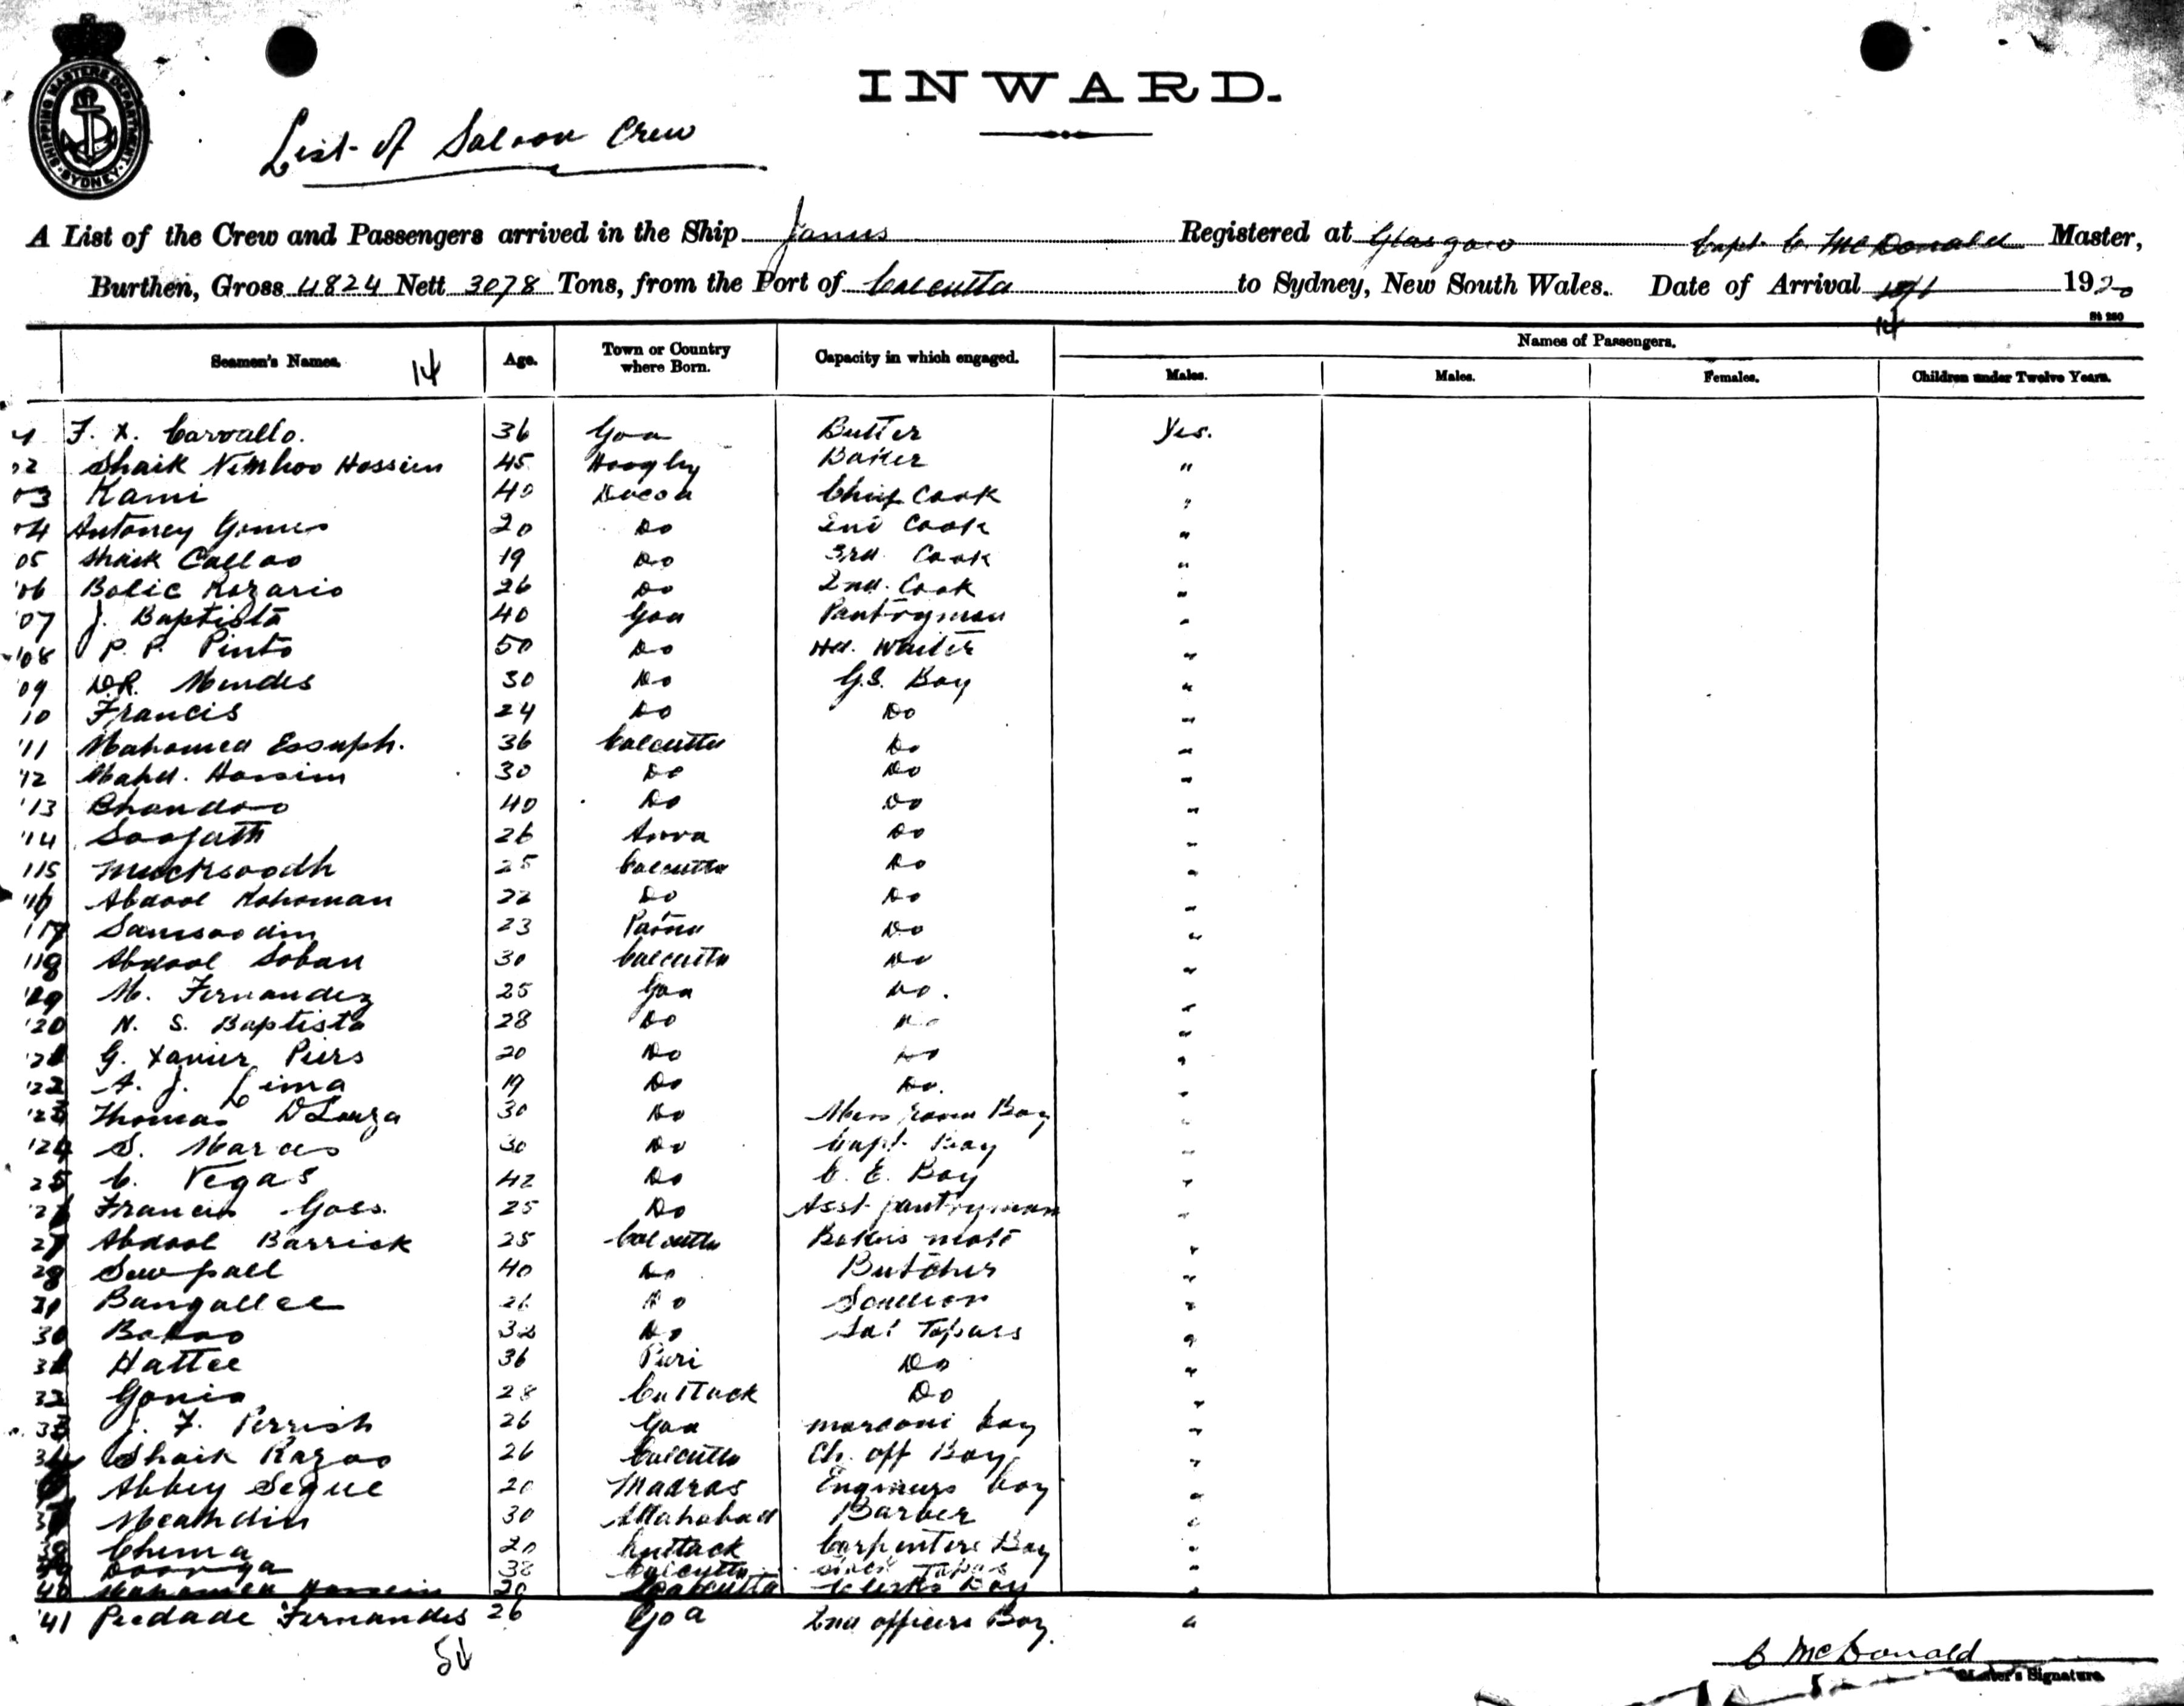 SHIPPING MASTERS DEPARTMENT. SYDNEY.
INWARD.
List of Saloon Crew
A List of the Crew and Passengers arrived in the Ship Janus Registered at Glasgow Capt. C. McDonald Master,
Burthen, Gross 4824 Nett 3078 Tons, from the Port of Calcutta to Sydney, New South Wales. Date of Arrival 1920
14
Seamen's Names. 14 Age. Town or Country where Born. Capacity in which engaged. Names of Passengers.
Males. Males. Females. Children under Twelve Years.
F. X. Carvallo. 36 Goa Butler Yes.
02 Shaik Hossien 45 Hoogly Baker "
03 Kami 40 Dacca Chief Cook "
04 Antoney Gomes 20 Do 2nd Cook "
05 Shaik Calloo 19 Do 3rd Cook "
06 Bolic Rozario 26 Do 2nd. Cook "
07 J. Baptista 40 Goa Pantryman "
108 P. P. Pinto 50 Do Hd. Waiter "
09 D.R. Mendes 30 Do G.S. Boy "
10 Francis 24 Do Do "
11 Mahomed Essuph. 36 Calcutta Do "
12 Mahd. Hossim 30 Do Do "
13 Chandoo 40 Do Do "
14 Soojath 26 Do "
115 Mucksoodh 25 Calcutta Do "
116 Abdool Rohoman 22 Do Do "
117 Samsoodin 23 Patna Do "
118 Abdool Soban 30 Calcutta Do "
119 M. Fernandez 25 Goa Do. "
120 N. S. Baptista 28 Do Do "
121 G. Xavier Piers 20 Do Do "
122 A. J. Lima 19 Do Do. "
123 Thomas D'Souza 30 Do Mess room Boy "
124 S. Marces 30 Do Capt. Boy "
25 C. Vegas 42 Do C. E. Boy "
26 Francis Goes 25 Do Asst. pantryman "
27 Abdool Barrick 25 Calcutta Bakers mate "
28 Sewpall 40 Do Butcher "
Bangallee 26 Do Scullion "
30 Bokoo 32 Do Sal Topass "
31 Hattee 36 Puri Do "
32 Gonia 28 Cuttack Do "
33 J. F. Perrish 26 Goa Marconi boy "
34 Shaik Razoo 26 Calcutta Ch. off Boy "
Abbey Segue 20 Madras Engineers boy "
Meahdin 30 Allahabad Barber "
Chema 20 Cuttack Carpenters Boy "
Doorga 38 Calcutta Topas "
40 Mahomed Hossein 20 Calcutta Clerks Boy "
41 Piedade Fernandes 26 Goa 2nd officers Boy. "
C McDonald
Master's Signature